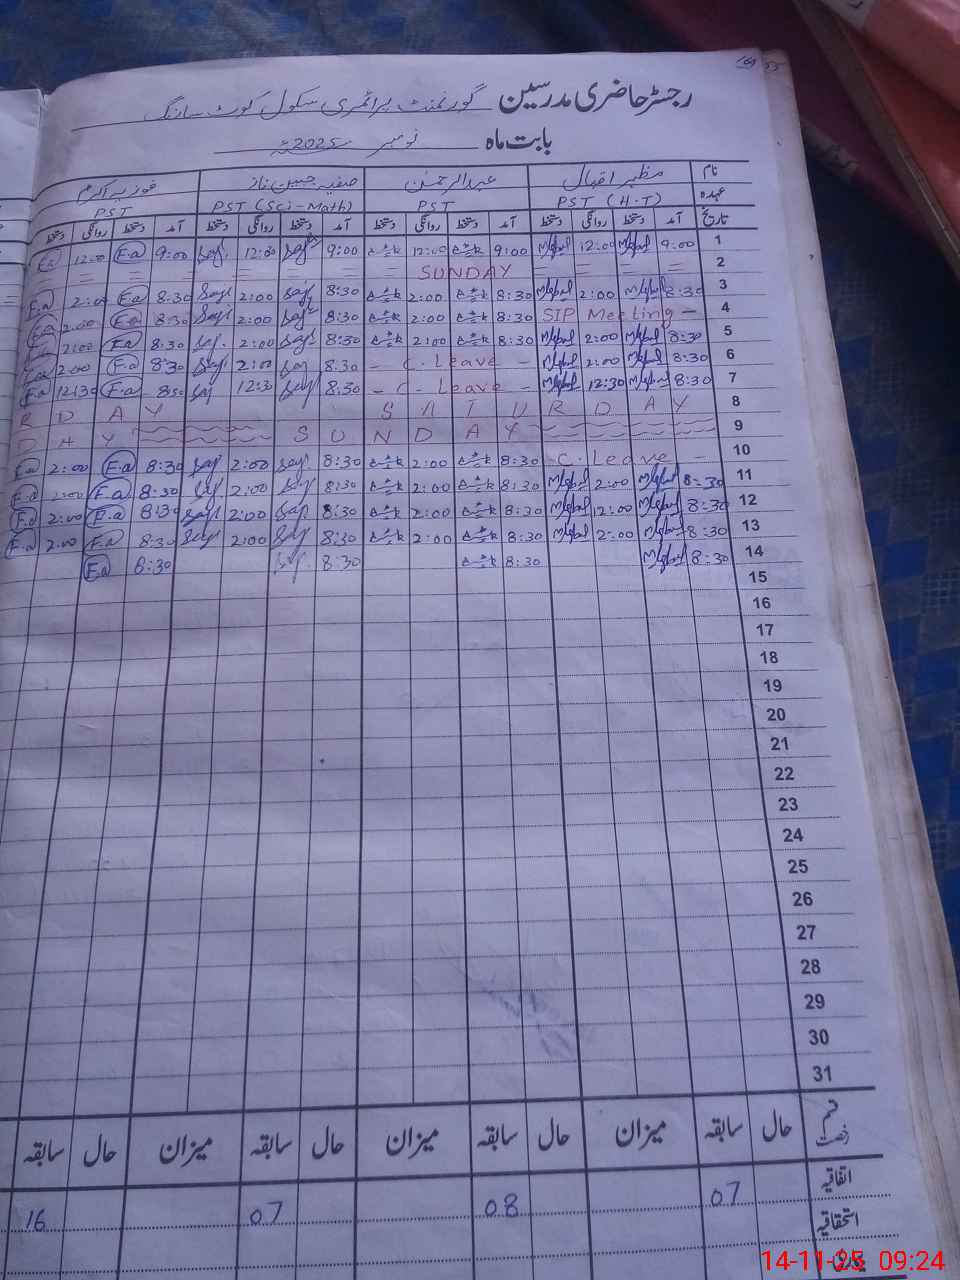 رجسٹر حاضری مدرسین گورنمنٹ پرائمری سکول کوٹ سارنگ
بابت ماہ نومبر 2025ء
نام مظہر اقبال عبدالرحمٰن صفیہ جبین ناز فوزیہ اکرم
عہدہ PST (H.T) PST PST (Sci-Math) PST
تاریخ آمد دستخط روانگی دستخط آمد دستخط روانگی دستخط آمد دستخط روانگی دستخط آمد دستخط روانگی دستخط
1 9:00 M/Iqbal 12:00 M/Iqbal 9:00 12:00 9:00 12:00 9:00 F.a 12:00 F.a
2 SUNDAY
3 8:30 M/Iqbal 2:00 M/Iqbal 8:30 2:00 8:30 2:00 8:30 F.a 2:00 F.a
4 SIP Meeting - 8:30 2:00 8:30 2:00 8:30 F.a 2:00 F.a
5 8:30 M/Iqbal 2:00 M/Iqbal 8:30 2:00 8:30 2:00 8:30 F.a 2:00 F.a
6 8:30 M/Iqbal 2:00 M/Iqbal - C. Leave - 8:30 2:00 8:30 F.a 2:00 F.a
7 8:30 M/Iqbal 12:30 M/Iqbal - C. Leave - 8:30 12:30 8:30 F.a 12:30 F.a
8 S A T U R D A Y R D A Y
9 S U N D A Y D A Y
10 C. Leave - 8:30 2:00 8:30 2:00 8:30 F.a 2:00 F.a
11 8:30 M/Iqbal 2:00 M/Iqbal 8:30 2:00 8:30 2:00 8:30 F.a 2:00 F.a
12 8:30 M/Iqbal 2:00 M/Iqbal 8:30 2:00 8:30 2:00 8:30 F.a 2:00 F.a
13 8:30 M/Iqbal 2:00 M/Iqbal 8:30 2:00 8:30 2:00 8:30 F.a 2:00 F.a
14 8:30 M/Iqbal 8:30 8:30 8:30 F.a
15
16
17
18
19
20
21
22
23
24
25
26
27
28
29
30
31
قسم رخصت حال سابقہ میزان حال سابقہ میزان حال سابقہ میزان حال سابقہ
اتفاقیہ 07 08 07 16
استحقاقیہ
14-11-25 09:24